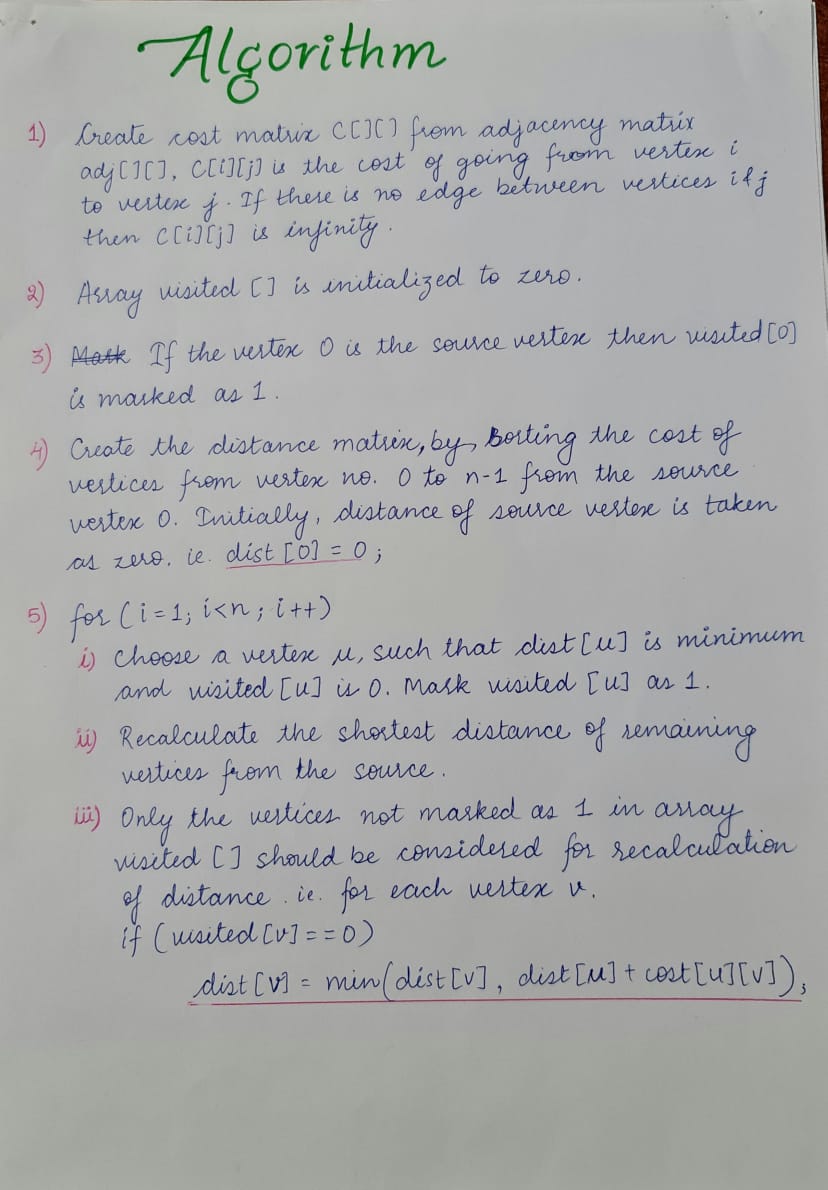 Algorithm
1) Create cost matrix C[][] from adjacency matrix
adj[][], C[i][j] is the cost of going from vertex i
to vertex j. If there is no edge between vertices i & j
then C[i][j] is infinity.
2) Array visited [] is initialized to zero.
3) Mark If the vertex 0 is the source vertex then visited[0]
is marked as 1.
4) Create the distance matrix, by, Sorting the cost of
vertices from vertex no. 0 to n-1 from the source
vertex 0. Initially, distance of source vertex is taken
as zero. ie. dist [0] = 0;
5) for (i=1; i<n; i++)
i) Choose a vertex u, such that dist[u] is minimum
and visited [u] is 0. Mark visited [u] as 1.
ii) Recalculate the shortest distance of remaining
vertices from the source.
iii) Only the vertices not marked as 1 in array
visited [] should be considered for recalculation
of distance. ie. for each vertex v.
if (visited[v]==0)
dist[v] = min(dist[v], dist[u]+cost[u][v]);